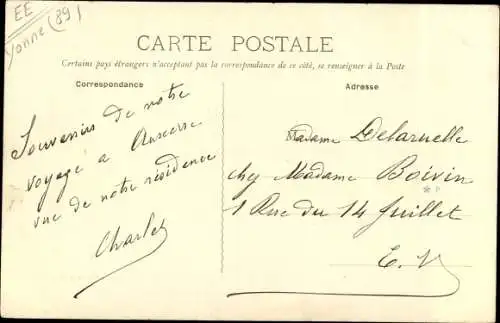 EE
Yonne (89)
CARTE POSTALE
Certains pays étrangers n'acceptant pas la correspondance de ce côté, se renseigner à la Poste
Correspondance
Souvenirs de notre
voyage a Auxerre
vue de notre résidence
Charles
Adresse
Madame Delaruelle
chez Madame Boivin
1 Rue du 14 Juillet
E. V